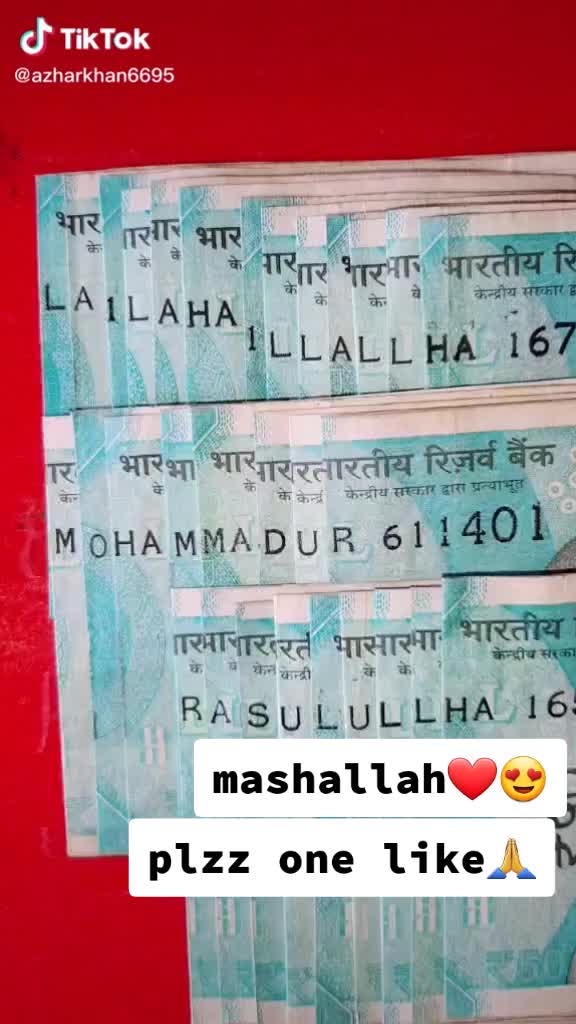 TikTok
@azharkhan6695
भार ार ार भार ार ार ार ार भारतीय रि
के के के के के के के के केन्द्रीय सरकार द्व
LA ILAHA ILLALLHA 167
ार भार भा भार ार रत ारतीय रिज़र्व बैंक
केन के के केन्द्री केन्द्रीय सरकार द्वारा प्रत्याभूत
MOHAMMADUR 611401
भारतीय
केन्द्रीय सरका
RASULULLHA 165
mashallah❤️😍
plzz one like🙏